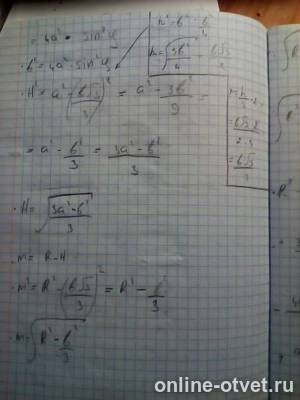 = 4a² • sin² φ
• b² = 4a² • sin² φ/2
h² = b² - b²/4
h = √(3b²/4) = b√3/2
• H² = a² - (b√3/3)² = a² - 3b²/9 =
= a² - b²/3 = (3a² - b²)/3
= b√3 · 2/2 · 3
= b√3/3
• H = √((3a² - b²)/3)
• m = R - H
• m² = R² - (b√3/3)² = R² - b²/3
• m = √(R² - b²/3)
online-otvet.ru